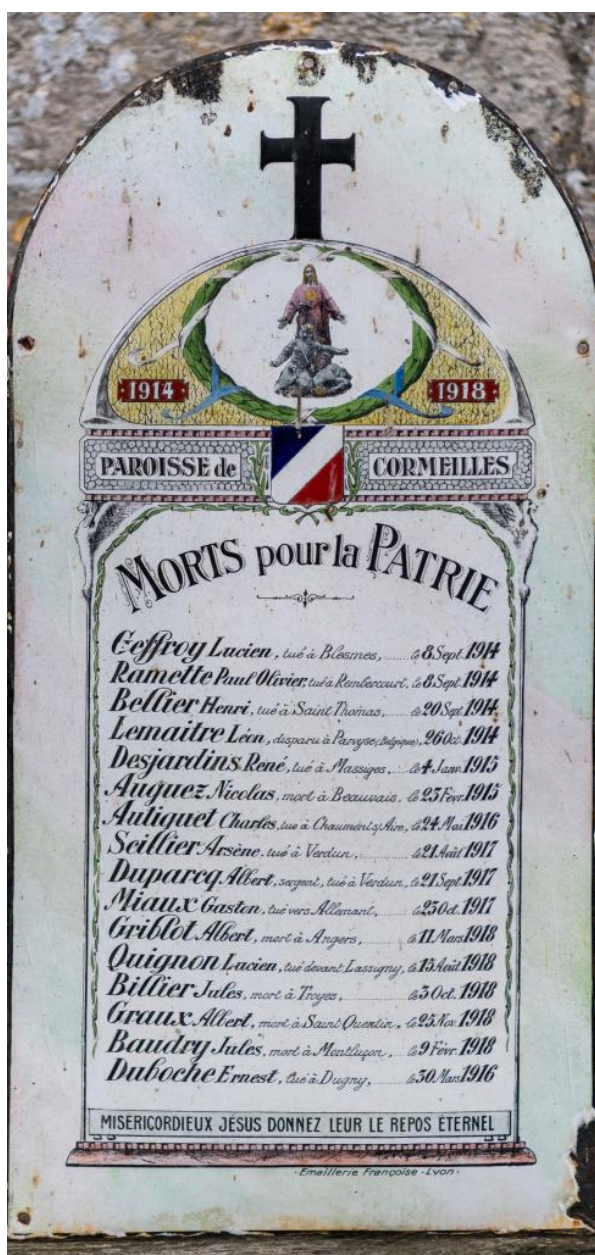 1914 1918
PAROISSE de CORMEILLES
MORTS pour la PATRIE
Geffroy Lucien, tué à Blesmes, ........ le 8 Sept. 1914
Ramette Paul Olivier, tué à Rembercourt, le 8 Sept. 1914
Bellier Henri, tué à Saint Thomas, ....... le 20 Sept. 1914
Lemaitre Léon, disparu à Parvyse (Belgique), 26 Oct. 1914
Desjardins René, tué à Massiges, ..... le 4 Janv. 1915
Auguez Nicolas, mort à Beauvais, le 23 Févr. 1915
Autiquet Charles, tué à Chaumont s/Aire, le 24 Mai 1916
Seillier Arsène, tué à Verdun, ............... le 21 Août 1917
Duparcq Albert, sergent, tué à Verdun, le 21 Sept. 1917
Miaux Gaston, tué vers Allemant, ....... le 23 Oct. 1917
Griblot Albert, mort à Angers, ......... le 11 Mars 1918
Quignon Lucien, tué devant Lassigny, le 15 Août 1918
Billier Jules, mort à Troyes, ................ le 3 Oct. 1918
Graux Albert, mort à Saint Quentin, .. le 25 Nov. 1918
Baudry Jules, mort à Montluçon, .... le 9 Févr. 1918
Duboche Ernest, tué à Dugny, ........ le 30 Mars 1916
MISÉRICORDIEUX JÉSUS DONNEZ LEUR LE REPOS ÉTERNEL
- Emaillerie Françoise - Lyon -